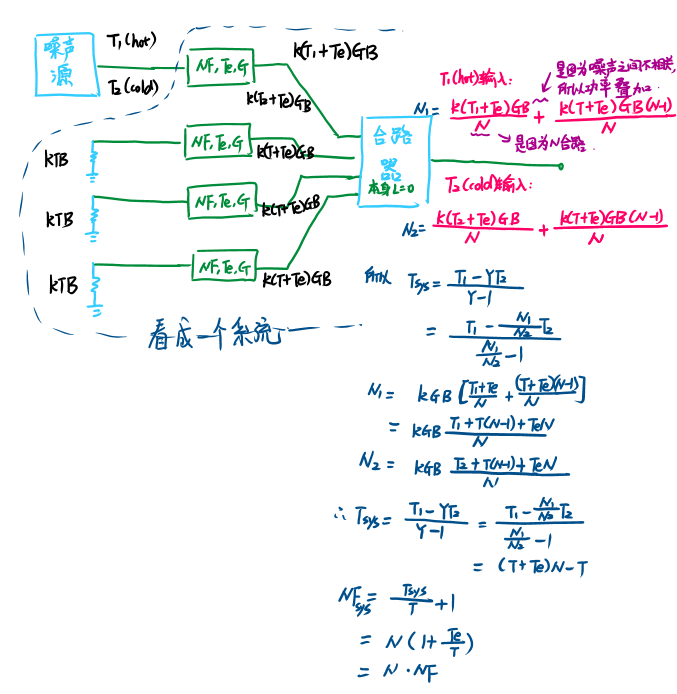 噪声源
T₁(hot)
T₂(cold)
NF,Te,G
k(T₁+Te)GB
k(T₂+Te)GB
kTB
NF,Te,G
k(T+Te)GB
kTB
NF,Te,G
k(T+Te)GB
kTB
NF,Te,G
k(T+Te)GB
合路器
本身L=0
看成一个系统
是因为噪声之间不相关,
所以功率叠加.
T₁(hot)输入:
N₁= k(T₁+Te)GB/N + k(T+Te)GB(N-1)/N
是因为N合路.
T₂(cold)输入:
N₂= k(T₂+Te)GB/N + k(T+Te)GB(N-1)/N
所以 Tsys= (T₁-YT₂)/(Y-1)
= (T₁-(N₁/N₂)T₂)/(N₁/N₂-1)
N₁= kGB[(T₁+Te)/N + (T+Te)(N-1)/N]
= kGB (T₁+T(N-1)+TeN)/N
N₂= kGB (T₂+T(N-1)+TeN)/N
∴ Tsys= (T₁-YT₂)/(Y-1) = (T₁-(N₁/N₂)T₂)/(N₁/N₂-1)
= (T+Te)N-T
NFsys= Tsys/T+1
= N(1+Te/T)
= N·NF